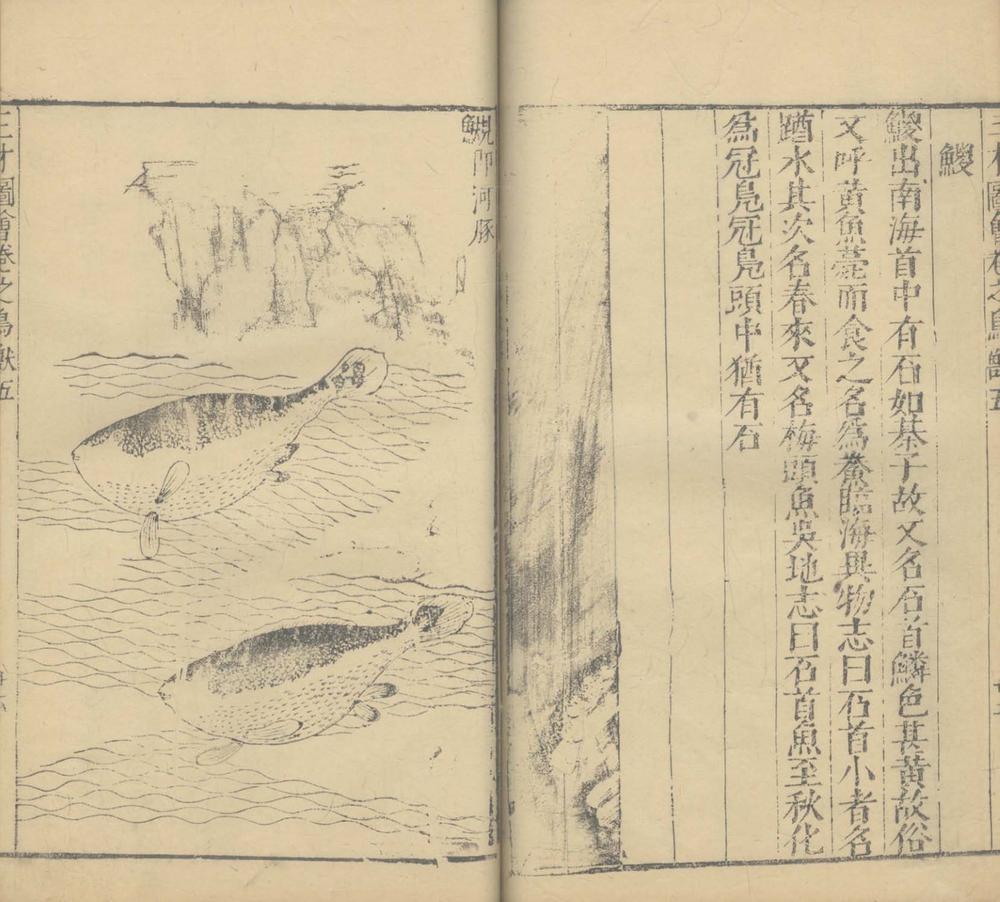 三才圖會卷之鳥獸五
鯼
鯼出南海首中有石如棊子故又名石首鱗色甚黃故俗
又呼黃魚薧而食之名爲鯗臨海異物志曰石首小者名
水其次名春來又名梅頭魚吳地志曰石首魚至秋化
爲冠鳧冠鳧頭中猶有石
即河豚
三才圖會卷之鳥獸五